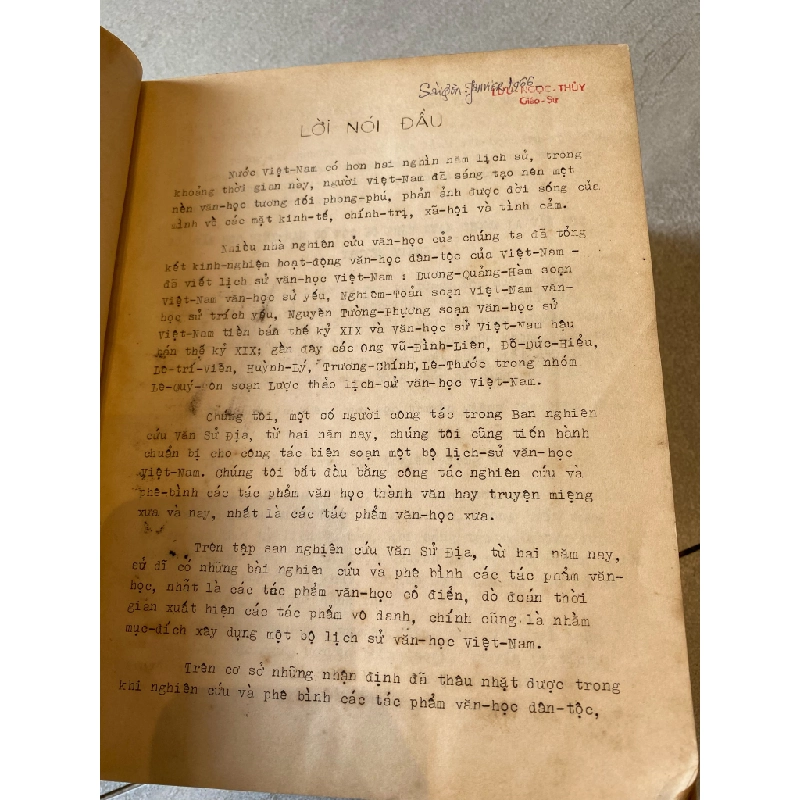 Sàigòn Janvier 1966
NGỌC-THỦY
Giáo-Sư
LỜI NÓI ĐẦU
Nước Việt-Nam có hơn hai nghìn năm lịch sử, trong
khoảng thời gian này, người Việt-Nam đã sáng tạo nên một
nền văn-học tương đối phong-phú, phản ảnh được đời sống của
mình về các mặt kinh-tế, chính-trị, xã-hội và tình cảm.
Nhiều nhà nghiên cứu văn-học của chúng ta đã tổng
kết kinh-nghiệm hoạt-động văn-học dân-tộc của Việt-Nam -
đã viết lịch sử văn-học Việt-Nam : Dương-Quảng-Hàm soạn
Việt-Nam văn-học sử yếu, Nghiêm-Toản soạn Việt-Nam văn-
học sử trích yếu, Nguyễn Tường-Phượng soạn văn-học sử
Việt-Nam tiền bán thế kỷ XIX và văn-học sử Việt-Nam hậu
bán thế kỷ XIX; gần đây các ông Vũ-Đình-Liên, Đỗ-Đức-Hiểu,
Lê-trí-viễn, Huỳnh-Lý, Trương-Chính, Lê-Thước trong nhóm
Lê-Quý-Đôn soạn Lược thảo lịch-sử văn-học Việt-Nam.
Chúng tôi, một có người công tác trong Ban nghiên
cứu Văn Sử Địa, từ hai năm nay, chúng tôi cũng tiến hành
chuẩn bị cho công tác biên soạn một bộ lịch-sử văn-học
Việt-Nam. Chúng tôi bắt đầu bằng công tác nghiên cứu và
phê-bình các tác phẩm văn học thành văn hay truyện miệng
xưa và nay, nhất là các tác phẩm văn-học xưa.
Trên tập san nghiên cứu Văn Sử Địa, từ hai năm nay,
sử dĩ có những bài nghiên cứu và phê bình các tác phẩm văn-
học, nhất là các tác phẩm văn-học cổ điển, dò đoán thời
gian xuất hiện các tác phẩm vô danh, chính cũng là nhằm
mục-đích xây dựng một bộ lịch sử văn-học Việt-Nam.
Trên cơ sở những nhận định đã thâu nhặt được trong
khi nghiên cứu và phê bình các tác phẩm văn-học dân-tộc,